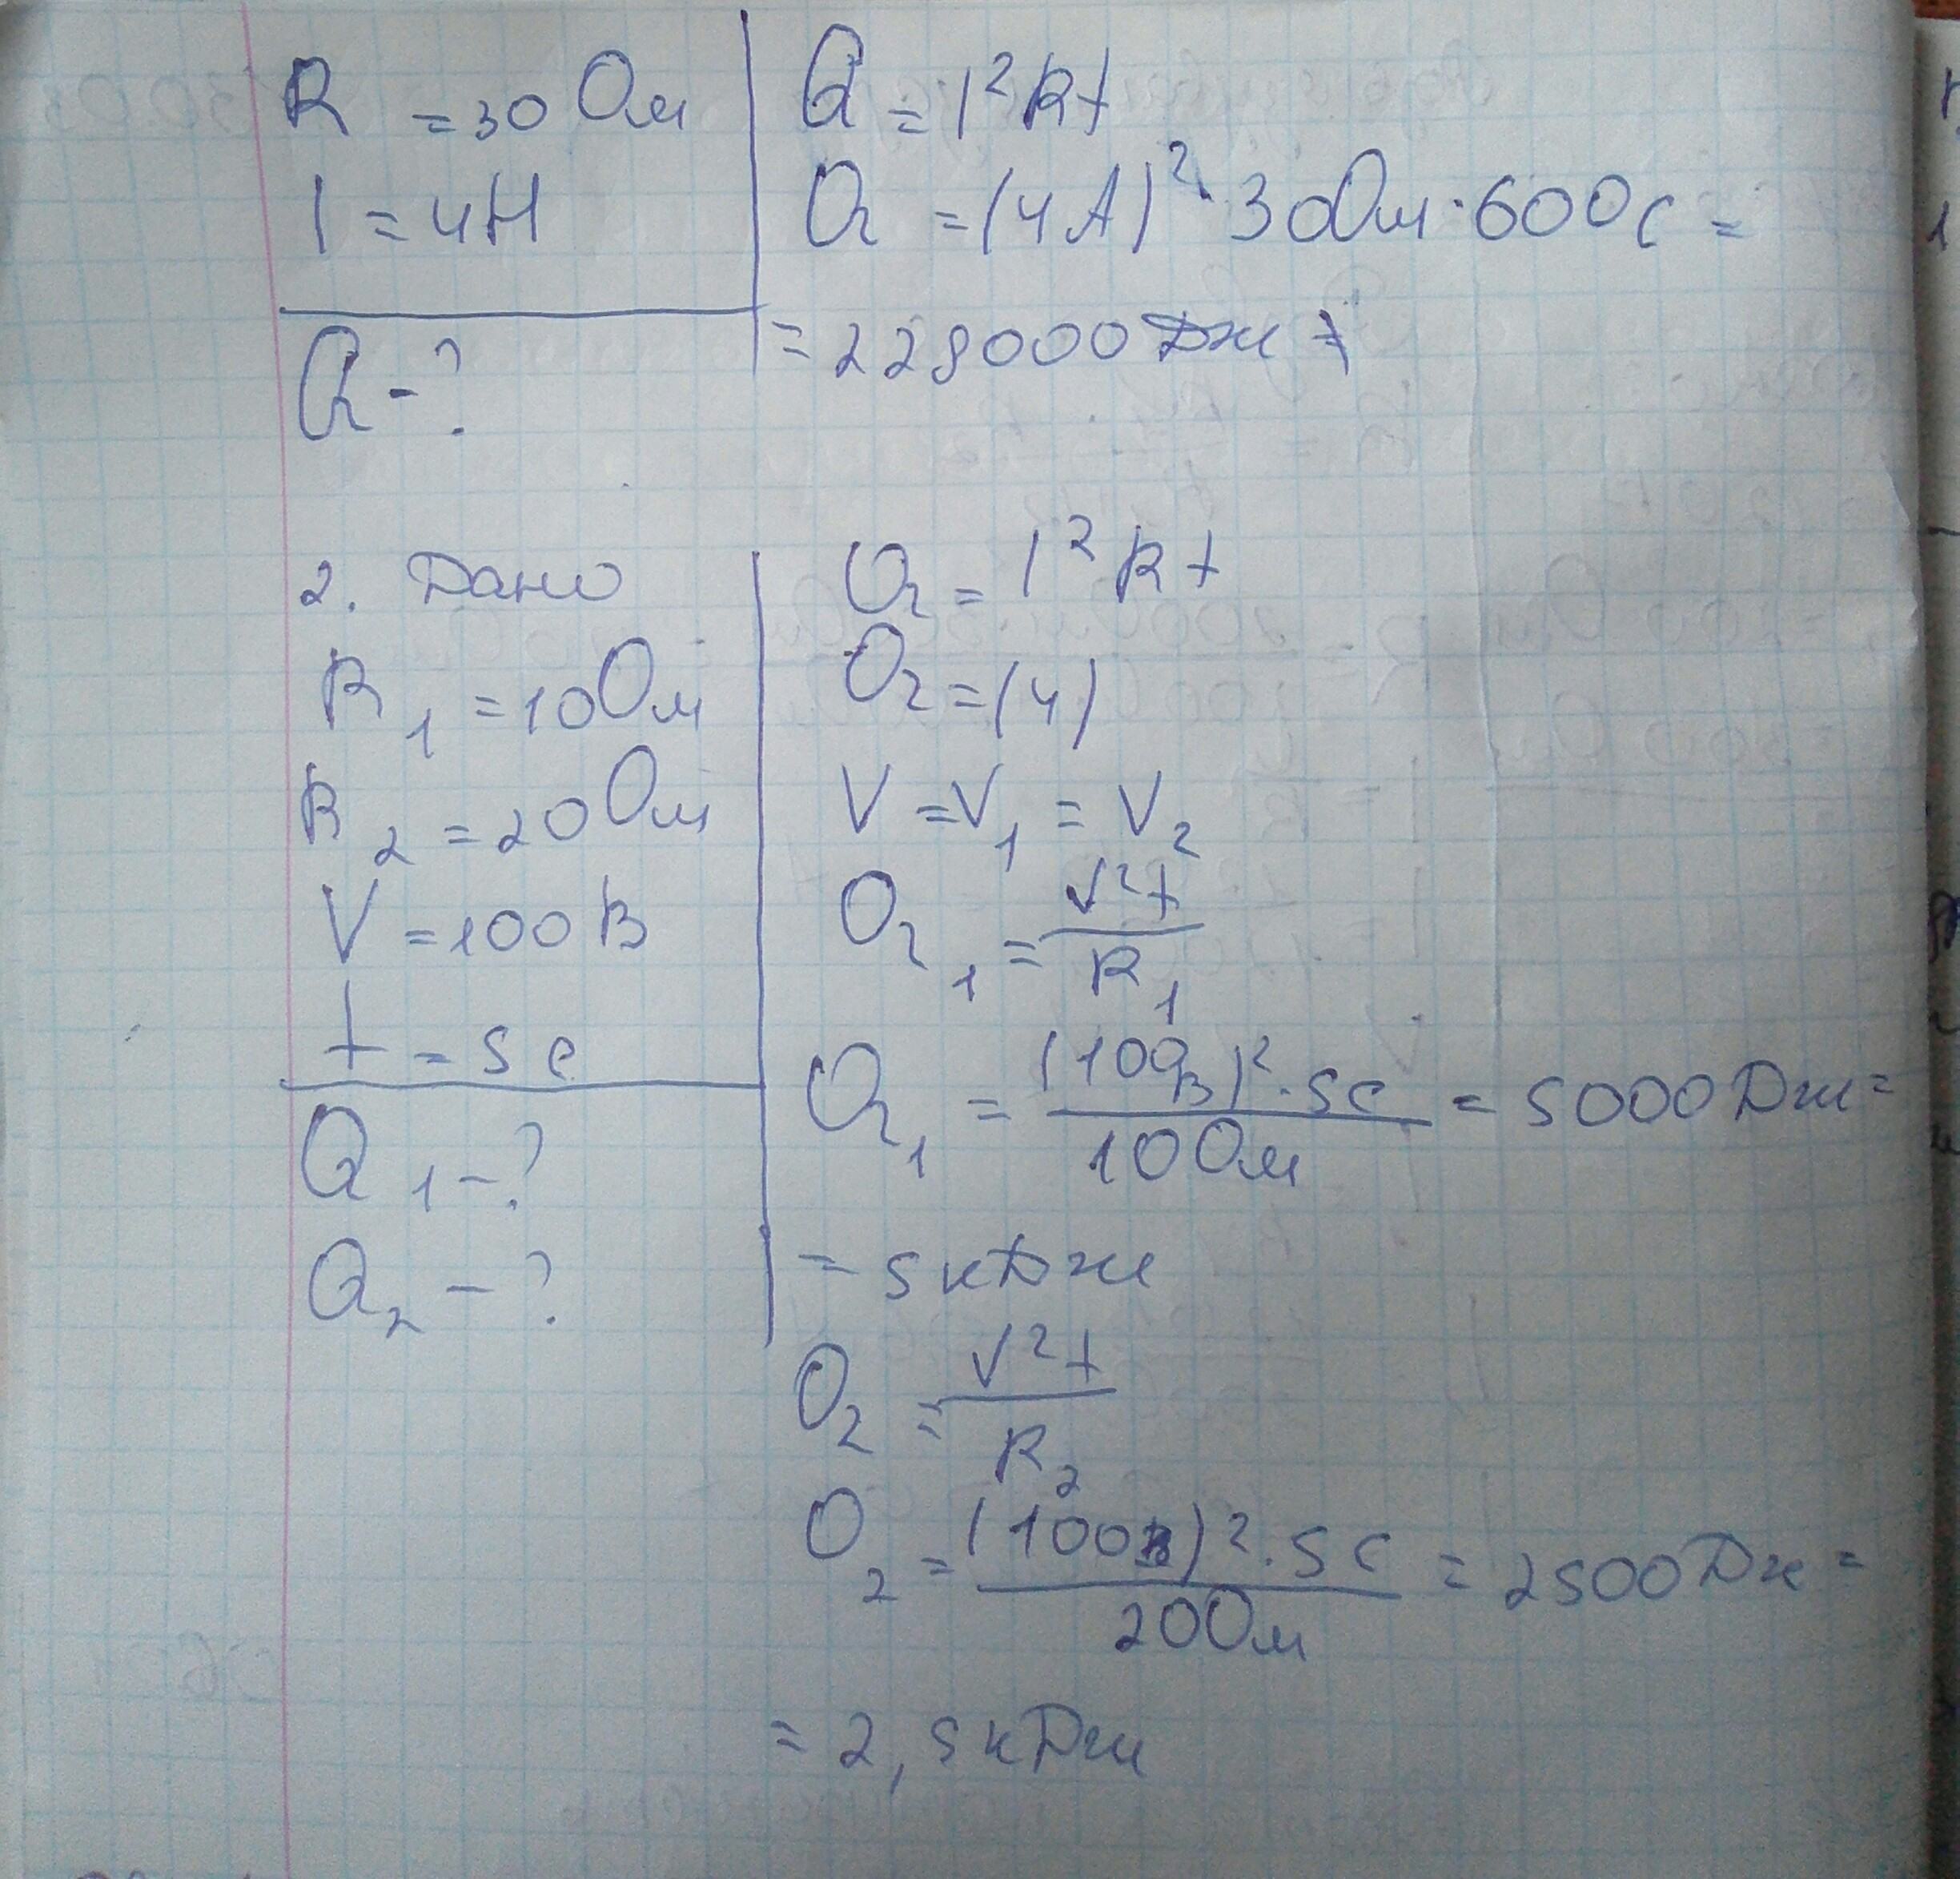 R = 30 Ом
I = 4Н
Q - ?
Q = I²Rt
Q = (4А)² · 30Ом · 600с =
= 228000 Дж
2. Дано
R1 = 10 Ом
R2 = 20 Ом
V = 100 В
t = 5 с
Q1 - ?
Q2 - ?
Q = I²Rt
Q = (4)
V = V1 = V2
Q1 = V²t / R1
Q1 = (100В)² · 5с / 10 Ом = 5000 Дж =
= 5 кДж
Q2 = V²t / R2
Q2 = (100В)² · 5 с / 20 Ом = 2500 Дж =
= 2,5 кДж